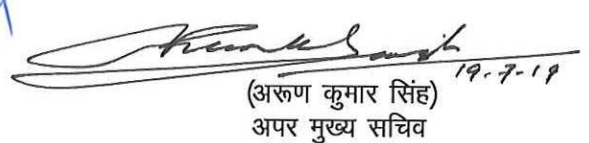 19-7-19
(अरूण कुमार सिंह)
अपर मुख्य सचिव